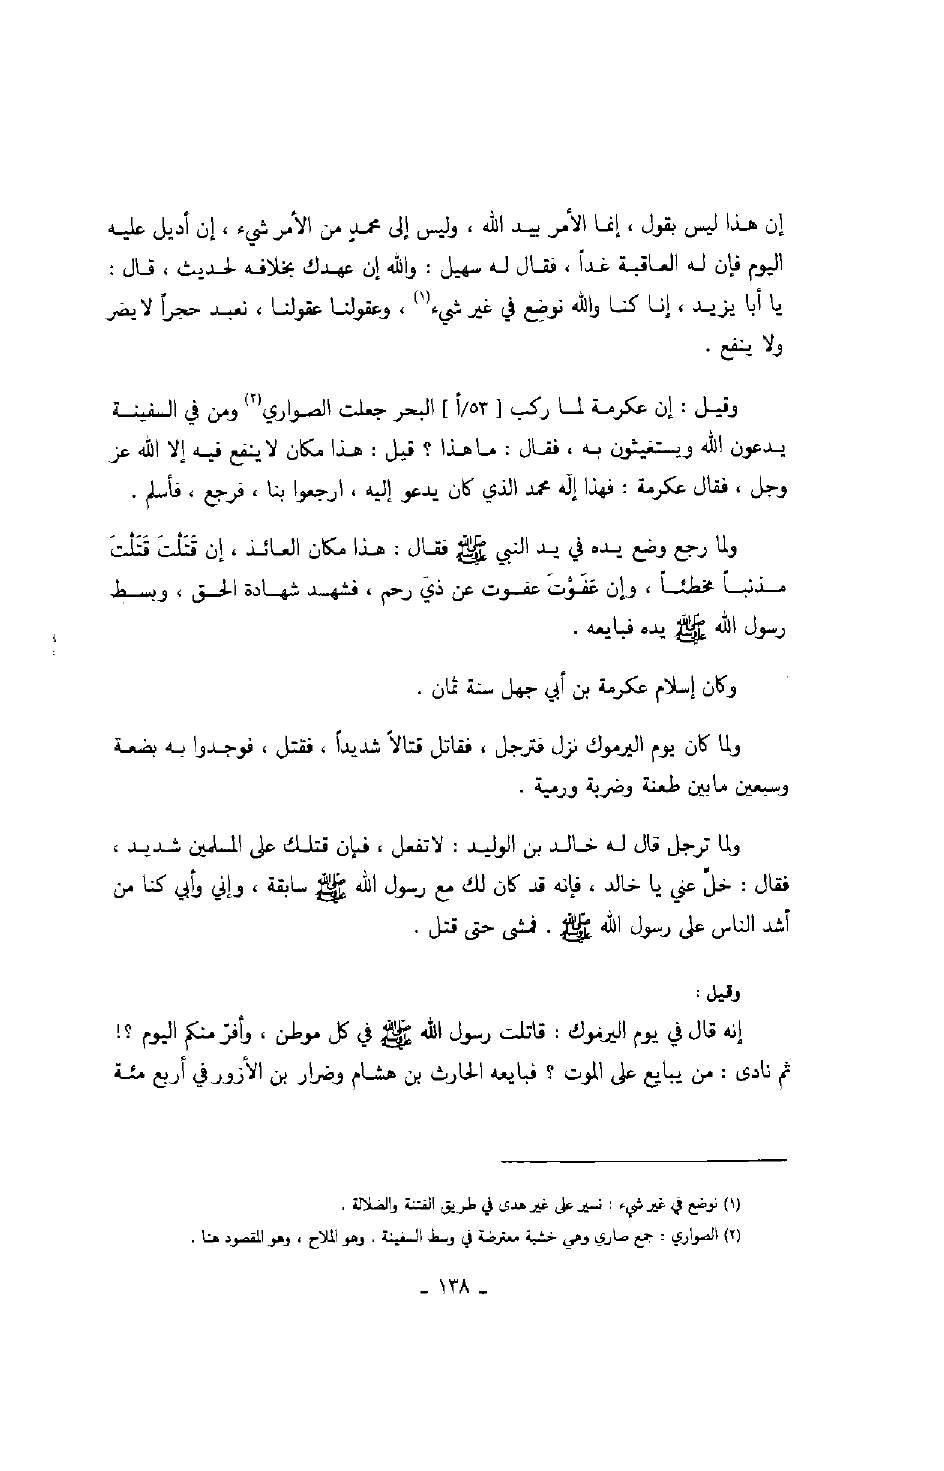 إن هذا ليس بقول ، إنما الأمر بيد الله ، وليس إلى محمدٍ من الأمر شيء ، إن أديل عليه
اليوم فإن له العاقبة غداً ، فقال له سهيل : والله إن عهدك بخلافه لحديث ، قال :
يا أبا يزيد ، إنا كنا والله نوضع في غير شيء(١) ، وعقولنا عقولنا ، نعبد حجراً لا يضر
ولا ينفع .
وقيل : إن عكرمة لما ركب [ ٥٣/أ ] البحر جعلت الصواري(٢) ومن في السفينة
يدعون الله ويستغيثون به ، فقال : ماهذا ؟ قيل : هذا مكان لا ينفع فيه إلا الله عز
وجل ، فقال عكرمة : فهذا إله محمد الذي كان يدعو إليه ، ارجعوا بنا ، فرجع ، فأسلم .
ولما رجع وضع يده في يد النبي ﷺ فقال : هذا مكان العائذ ، إن قَتَلْتَ قَتَلْتَ
مذنباً مخطئاً ، وإن عَفَوْتَ عفوت عن ذي رحم ، فشهد شهادة الحق ، وبسط
رسول الله ﷺ يده فبايعه .
وكان إسلام عكرمة بن أبي جهل سنة ثمان .
ولما كان يوم اليرموك نزل فترجل ، فقاتل قتالاً شديداً ، فقتل ، فوجدوا به بضعة
وسبعين مابين طعنة وضربة ورمية .
ولما ترجل قال له خالد بن الوليد : لاتفعل ، فإن قتلك على المسلمين شديد ،
فقال : خلِّ عني يا خالد ، فإنه قد كان لك مع رسول الله ﷺ سابقة ، وإني وأبي كنا من
أشد الناس على رسول الله ﷺ . فمشى حتى قتل .
وقيل :
إنه قال في يوم اليرموك : قاتلت رسول الله ﷺ في كل موطن ، وأفرّ منكم اليوم ؟!
ثم نادى : من يبايع على الموت ؟ فبايعه الحارث بن هشام وضرار بن الأزور في أربع مئة
(١) نوضع في غير شيء : نسير على غير هدى في طريق الفتنة والضلالة .
(٢) الصواري : جمع صاري وهي خشبة معترضة في وسط السفينة . وهو الملاح ، وهو المقصود هنا .
- ١٣٨ -